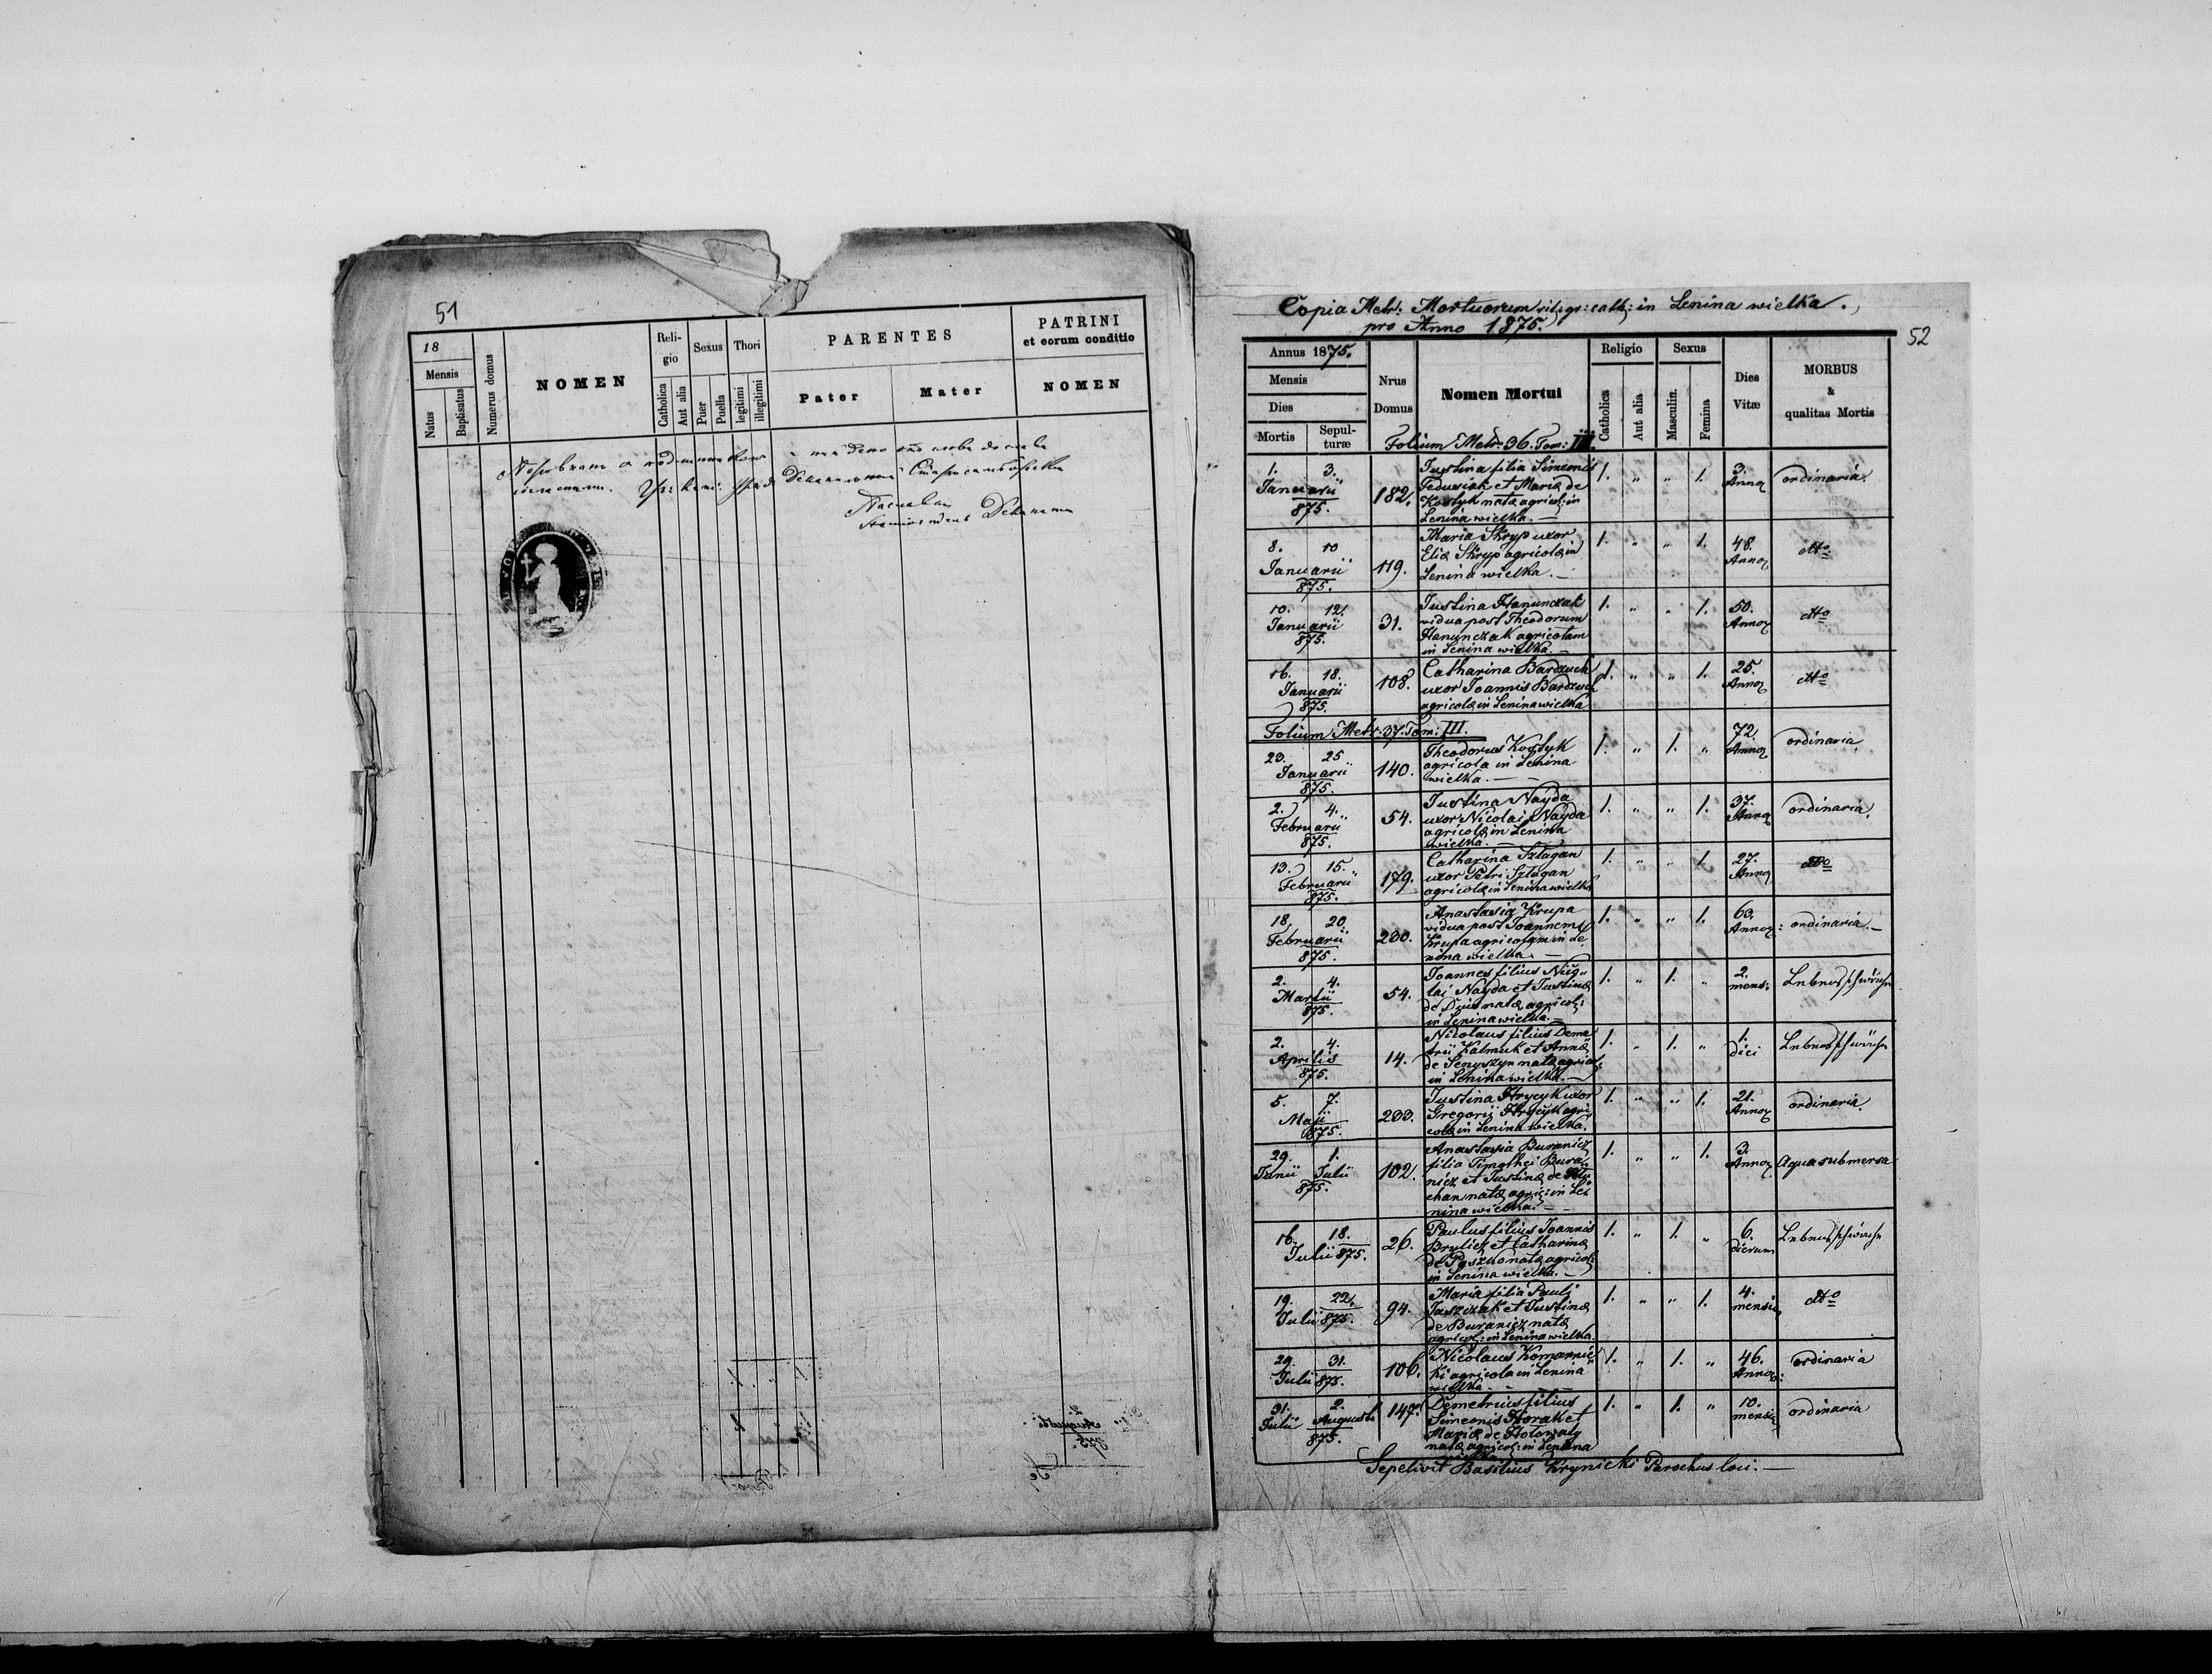 51
18
Mensis
Natus
Baptisatus
Numerus domus
NOMEN
Reli-
gio
Catholica
Aut alia
Sexus
Puer
Puella
Thori
legitimi
illegitimi
PARENTES
Pater
Mater
PATRINI
et eorum conditio
NOMEN
Copia Metr: Mortuorum rit: gr: cath: in Lenina wielka.
pro Anno 1875.
52
Annus 1875.
Mensis
Dies
Mortis
Sepul-
turæ
Nrus
Domus
Nomen Mortui
Religio
Catholica
Aut alia
Sexus
Masculin.
Femina
Dies
Vitæ
MORBUS
&
qualitas Mortis
Folium Metr: 36. Tom: III.
1. 3.
Januarii
875.
182.
Justina filia Simeonis
Fedusiak et Mariæ de
Kostyk natæ agricol: in
Lenina wielka. —
1. „ „ 1.
3.
Annor
ordinaria.
8. 10
Januarii
875.
119.
Maria Skryp uxor
Eliæ Skryp agricolæ in
Lenina wielka. —
1. „ „ 1.
48.
Annor
dtto
10. 12.
Januarii
875.
31.
Justina Hanunczak
vidua post Theodorum
Hanunczak agricolam
in Lenina wielka —
1. „ „ 1.
50.
Annor
dtto
16. 18.
Januarii
875.
108.
Catharina Bardzuch
uxor Joannis Bardzuch
agricolæ in Lenina wielka
1. „ „ 1.
25.
Annor
dtto
Folium Metr: 37. Tom: III.
23. 25
Januarii
875.
140.
Theodorus Kostyk
agricola in Lenina
wielka. —
1. „ 1. „
72.
Annor
ordinaria
2. 4.
Februarii
875.
54.
Justina Nayda
uxor Nicolai Nayda
agricolæ in Lenina
wielka. —
1. „ „ 1.
37.
Annor
ordinaria.
13. 15.
Februarii
875.
179.
Catharina Sztagan
uxor Petri Sztagan
agricolæ in Lenina wielka
1. „ „ 1.
27.
Annor
dtto
18. 20.
Februarii
875.
200.
Anastasia Krupa
vidua post Joannem
Krupa agricolam in Le
nina wielka. —
1. „ „ 1.
60.
Annor:
ordinaria. —
2. 4.
Martii
875.
54.
Joannes filius Nico
lai Nayda et Justinæ
de natæ agricol:
in Lenina wielka. —
1. „ 1. „
2.
mens:
Lebensschwäche
2. 4.
Aprilis
875.
14.
Nicolaus filius Deme
trii Kalmuk et Annæ
de Senyszyn natæ agricol:
in Lenina wielka. —
1. „ 1. „
1.
diei
Lebensschwäche
5. 7.
Maji
875.
203.
Justina Hrycyk uxor
Gregorii Hrycyk agri
colæ in Lenina wielka.
1. „ „ 1.
21.
Annor
ordinaria.
29. 1.
Junii Julii
875.
102.
Anastasia Buranicz
filia Timothei Bura
nicz et Justinæ de
chan natæ agric: in Le
nina wielka. —
1. „ „ 1.
3.
Annor
Aqua submersa
16. 18.
Julii 875.
26.
Paulus filius Joannis
Brylicz et Catharinæ
de Paszko natæ agricol:
in Lenina wielka. —
1. „ 1. „
6.
dierum
Lebensschwäche
19. 22.
Julii 875.
94.
Maria filia Pauli
Jaszczak et Justinæ
de Buranicz natæ
agricol: in Lenina wielka.
1. „ „ 1.
4.
mensium
dtto
29. 31.
Julii 875.
106.
Nicolaus Komarnic
ki agricola in Lenina
wielka. —
1. „ 1. „
46.
Annor:
ordinaria
31. 2.
Julii Augusti
875.
147.
Demetrius filius
Simeonis Horak et
Mariæ de
natæ agricol: in Lenina
wielka.
1. „ 1. „
10.
mensium
ordinaria
Sepelivit Basilius Krynicki Parochus loci. —